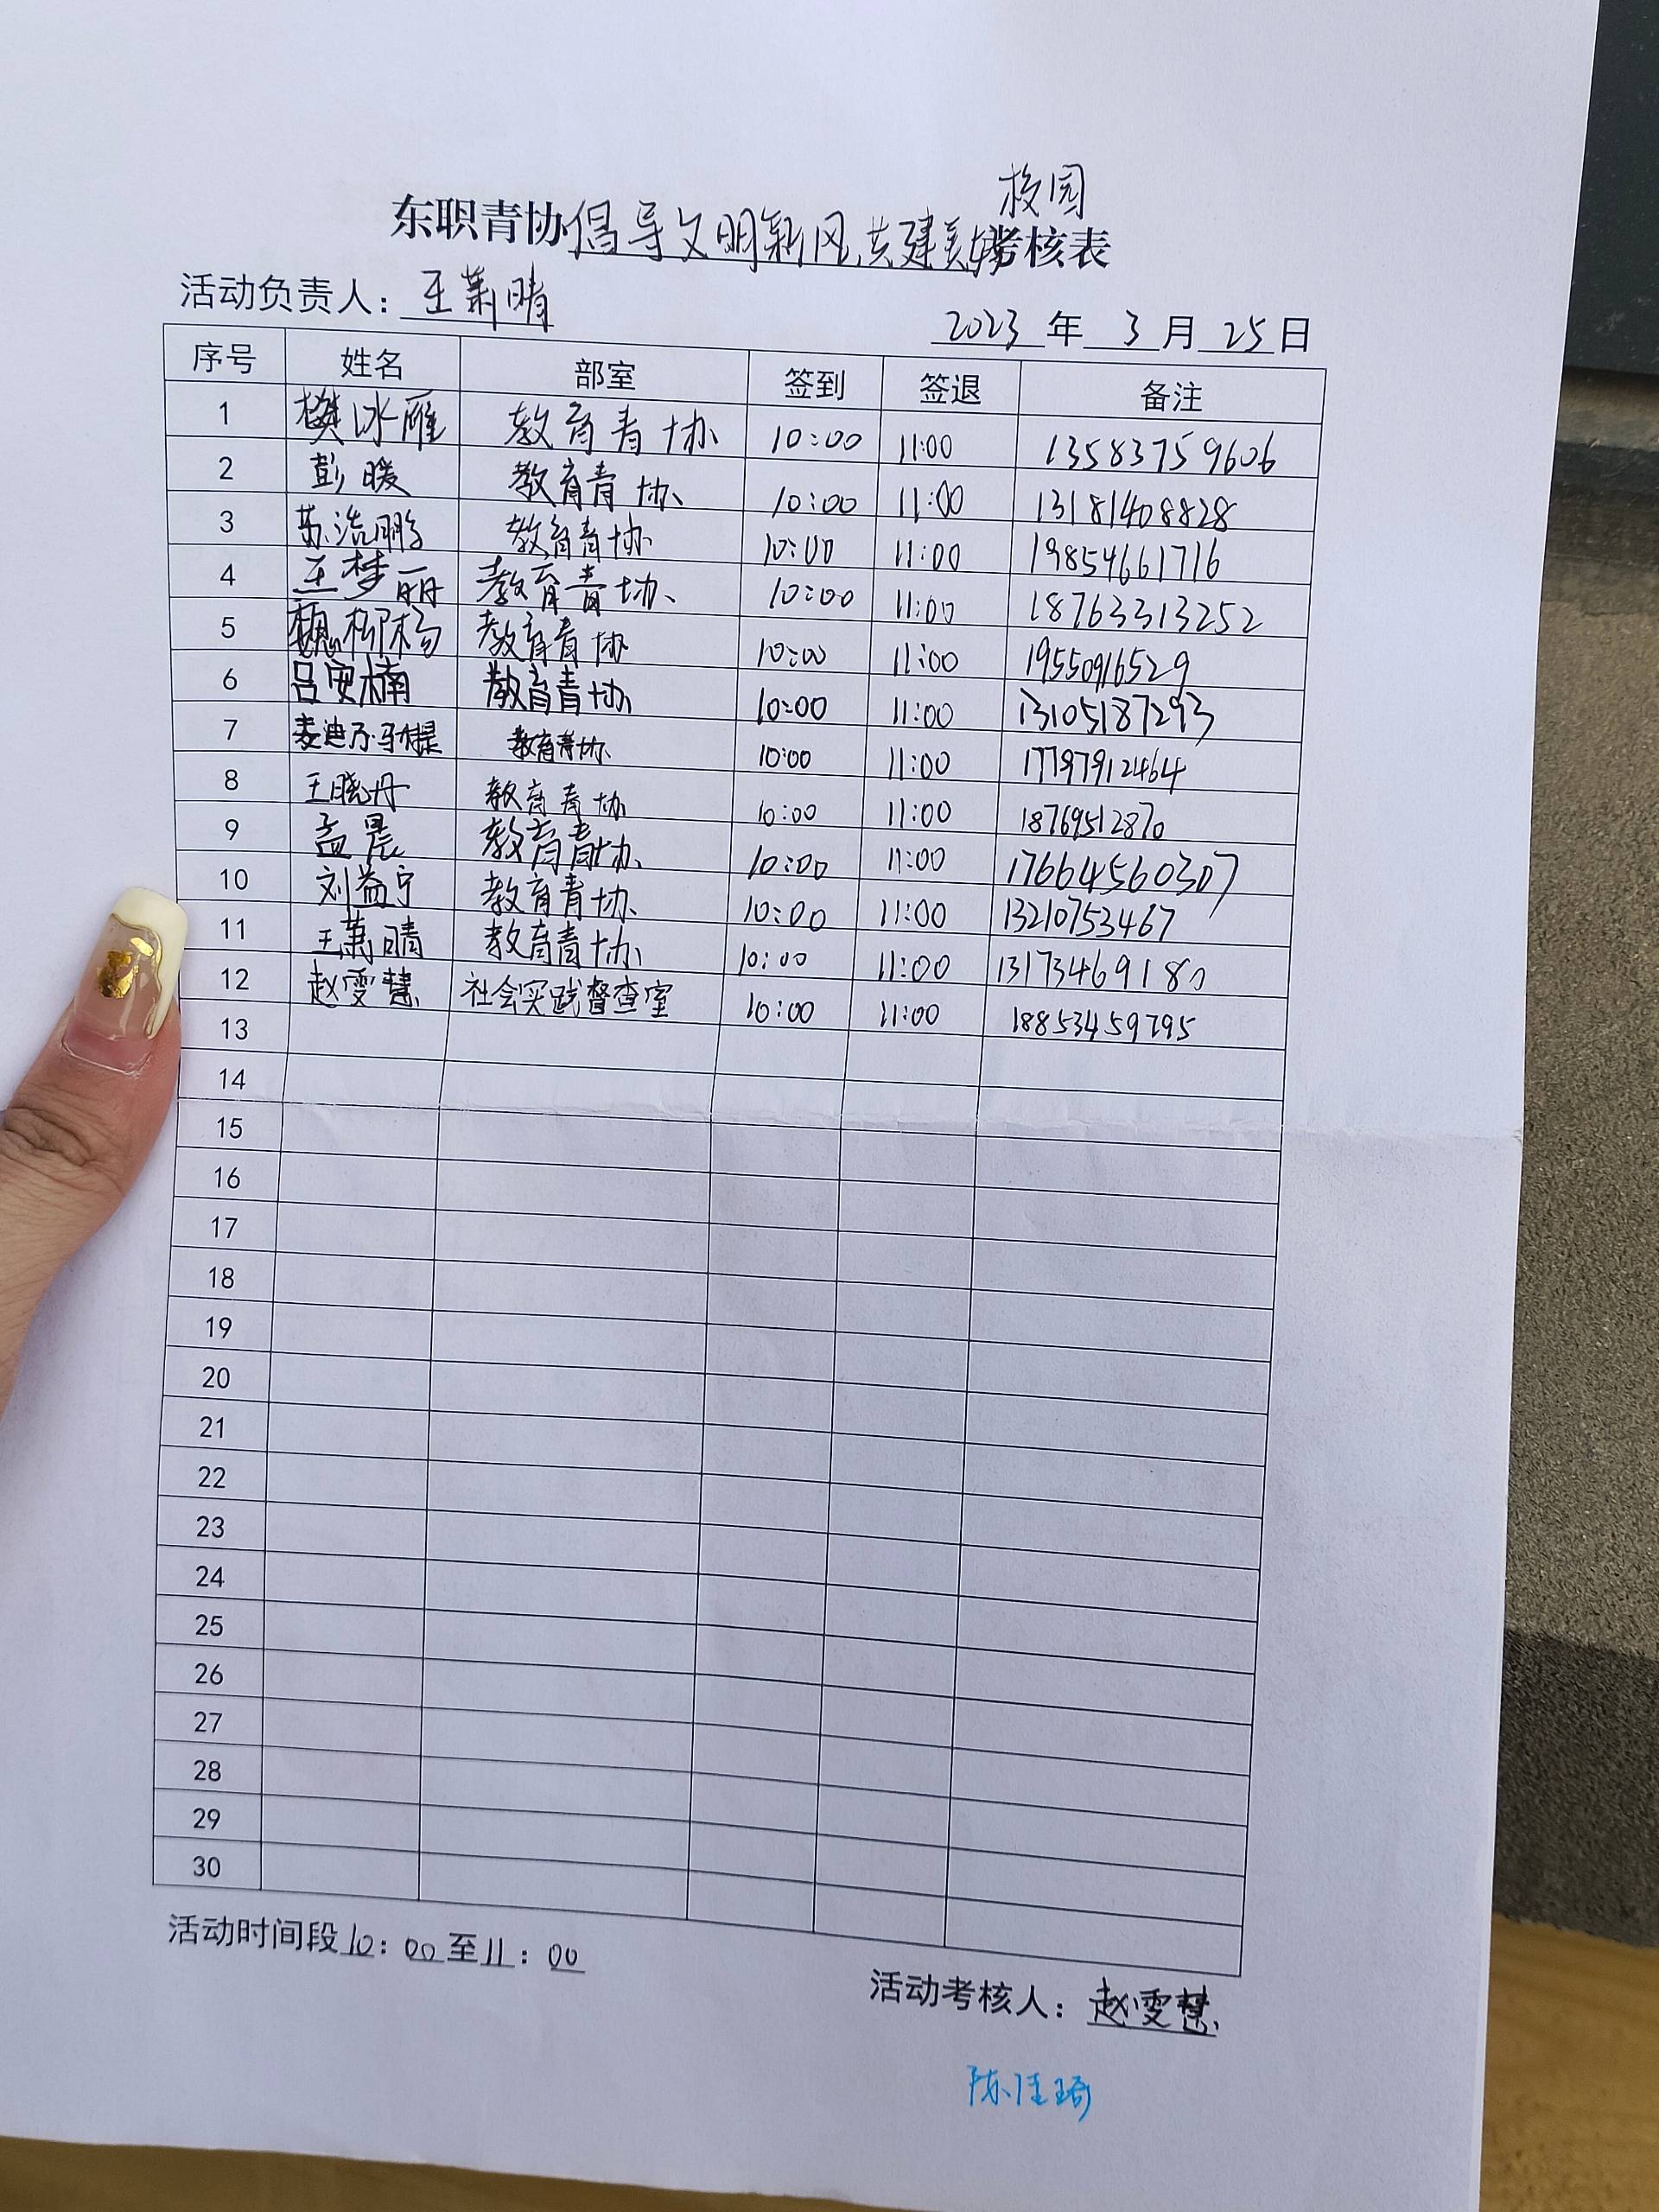 校园
东职青协倡导文明新风,共建美好考核表
活动负责人：王萧晴
2023年3月25日
序号 姓名 部室 签到 签退 备注
1 樊冰雁 教育青协 10:00 11:00 13583759606
2 彭暖 教育青协 10:00 11:00 13181408828
3 苏浩鹏 教育青协 10:00 11:00 19854661716
4 王梦丽 教育青协 10:00 11:00 18763313252
5 魏柳杨 教育青协 10:00 11:00 19550916529
6 吕安楠 教育青协 10:00 11:00 13105187293
7 教育青协 10:00 11:00 17797912464
8 王晓丹 教育青协 10:00 11:00 18769512870
9 孟晨 教育青协 10:00 11:00 17664560307
10 刘益宁 教育青协 10:00 11:00 13210753467
11 王萧晴 教育青协 10:00 11:00 13173469180
12 赵雯慧 社会实践督查室 10:00 11:00 18853459795
13
14
15
16
17
18
19
20
21
22
23
24
25
26
27
28
29
30
活动时间段10：00至11：00
活动考核人：赵雯慧
陈佳琦